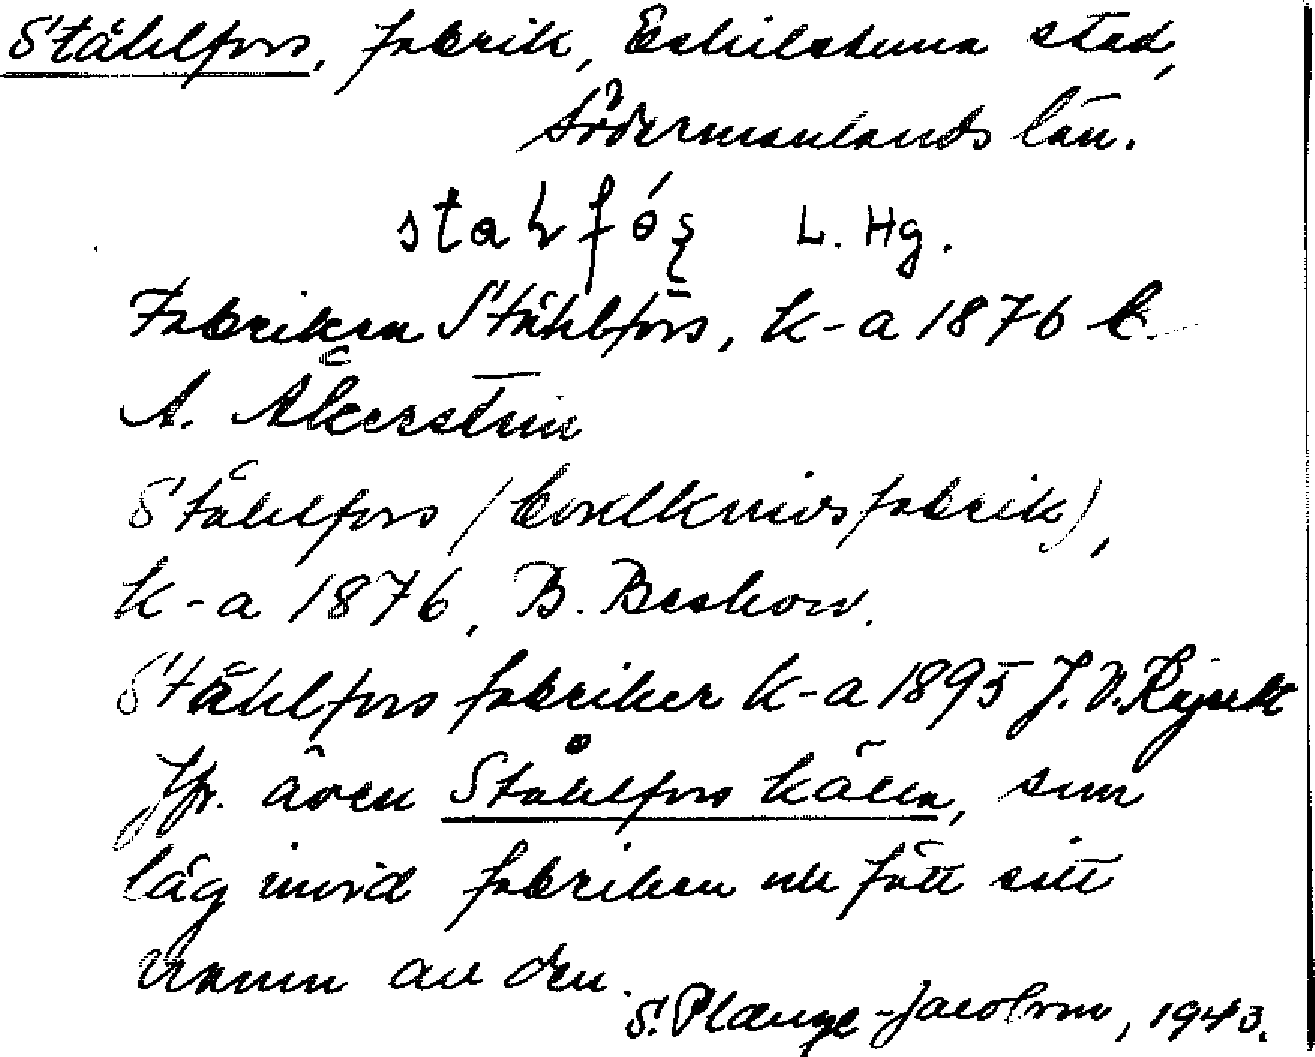 Ståhlfors, fabrik, Eskilstuna stad,
Södermanlands län.
L. Hg.
Fabriken Ståhlfors, k-a 1876 C.
A. Åkerstein
Ståhlfors (bordknivsfabrik),
k-a 1876, B. Beskow.
Ståhlfors fabriker k-a 1895 J. V.
Jfr. även Ståhlfors källa, som
låg invid fabriken och fått sitt
namn av den.
S. Plænge-Jacobson, 1943.